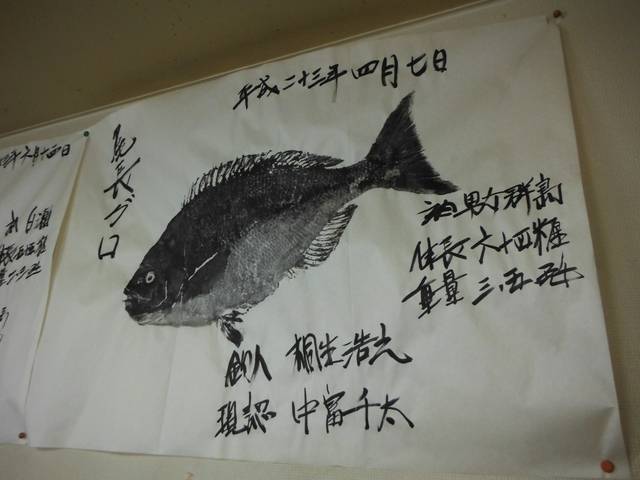 平成二十三年四月七日
尾長グロ
男女群島
体長 六十四糎
重量 三.五
釣人 桐生浩之
現認 中富千太
六月十四日